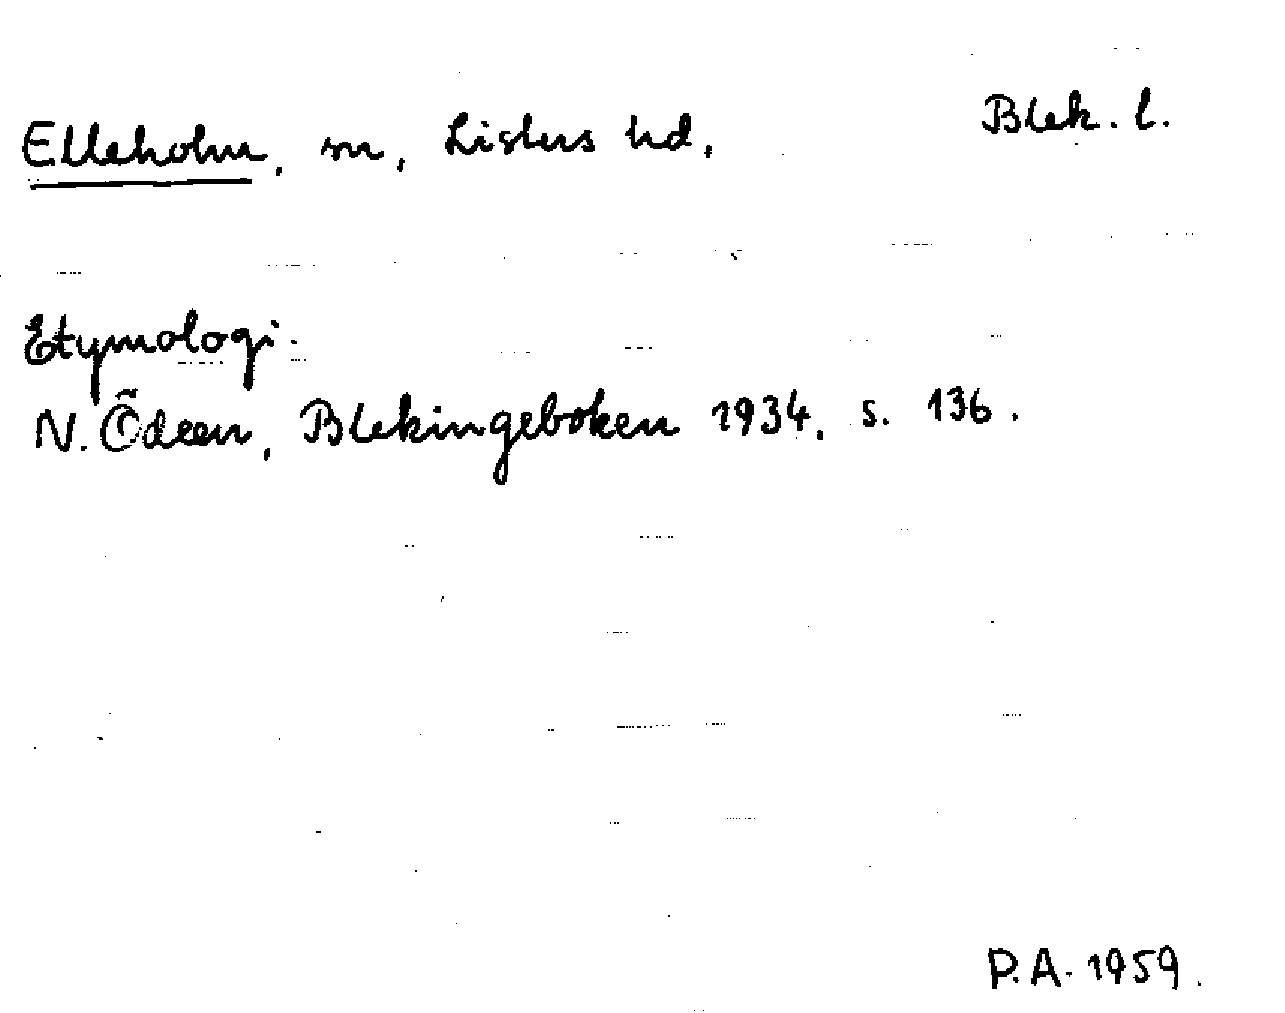 Elleholm, sn, Listers hd, Blek. l.
Etymologi.
N. Ödeen, Blekingeboken 1934, s. 136.
P.A. 1959.